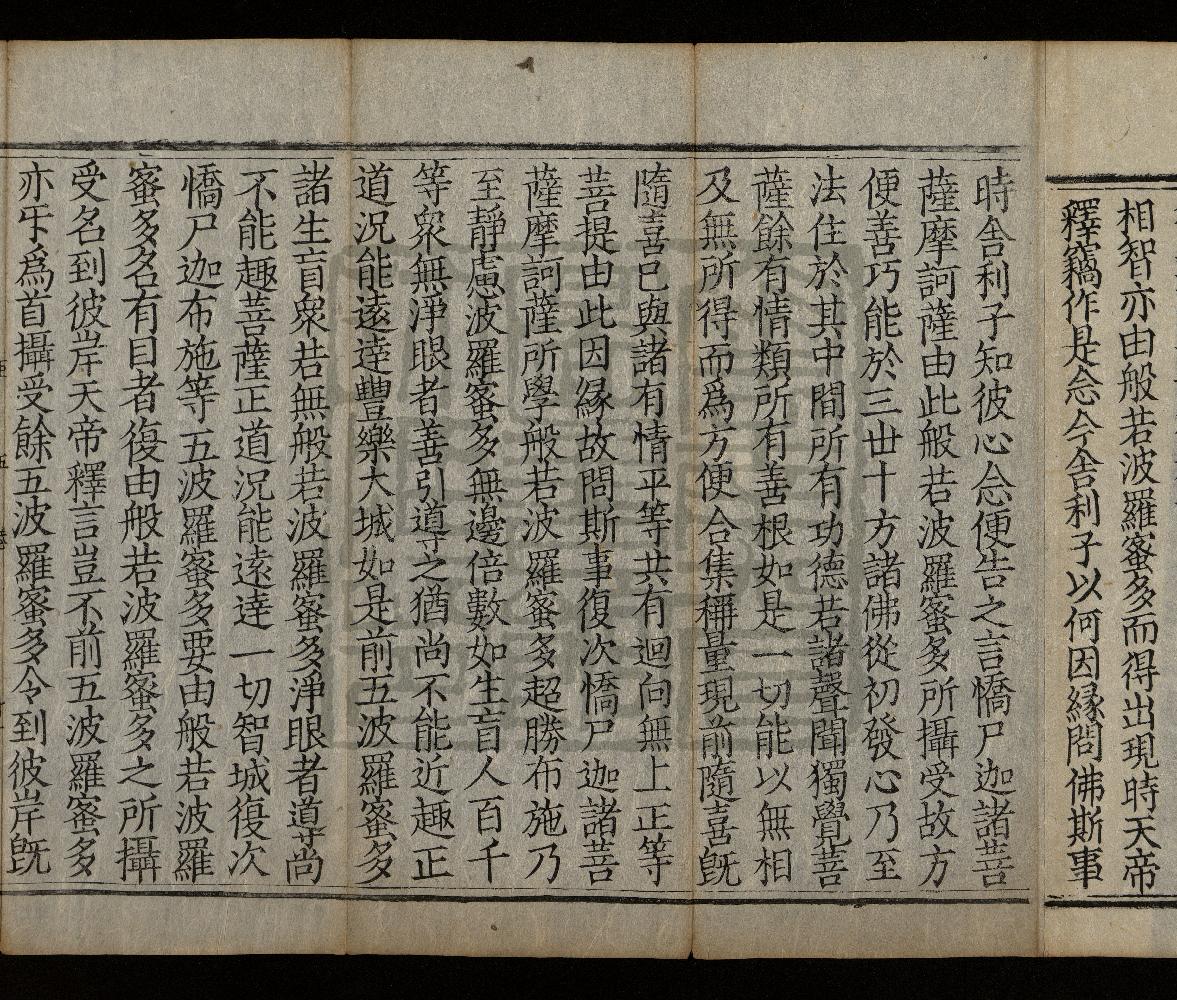 相智亦由般若波羅蜜多而得出現時天帝
釋竊作是念今舍利子以何因緣問佛斯事
時舍利子知彼心念便告之言憍尸迦諸菩
薩摩訶薩由此般若波羅蜜多所攝受故方
便善巧能於三世十方諸佛從初發心乃至
法住於其中間所有功德若諸聲聞獨覺菩
薩餘有情類所有善根如是一切能以無相
及無所得而爲方便合集稱量現前隨喜旣
隨喜已與諸有情平等共有迴向無上正等
菩提由此因緣故問斯事復次憍尸迦諸菩
薩摩訶薩所學般若波羅蜜多超勝布施乃
至靜慮波羅蜜多無邊倍數如生盲人百千
等衆無淨眼者善引導之猶尚不能近趣正
道況能遠達豐樂大城如是前五波羅蜜多
諸生盲衆若無般若波羅蜜多淨眼者導尚
不能趣菩薩正道況能遠達一切智城復次
憍尸迦布施等五波羅蜜多要由般若波羅
蜜多名有目者復由般若波羅蜜多之所攝
受名到彼岸天帝釋言豈不前五波羅蜜多
亦㸦爲首攝受餘五波羅蜜多令到彼岸旣